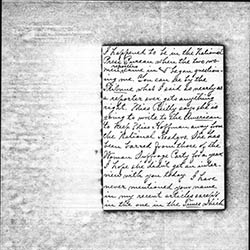 I happened to be in the National
Press Bureau when the two wo-
reporters
men came in & began question-
ing me. You can see by the
what I said as nearly as
a reporter ever gets anything
right. Miss Reilly says she is
going to write to the American
to keep Miss Hoffman away from
the National Headqrs. She has
been barred from those of the
Woman Suffrage Party for a year.
I hope she didn't get an inter-
view with you today. I have
never mentioned your name
in my recent articles except
in the one in the Times which